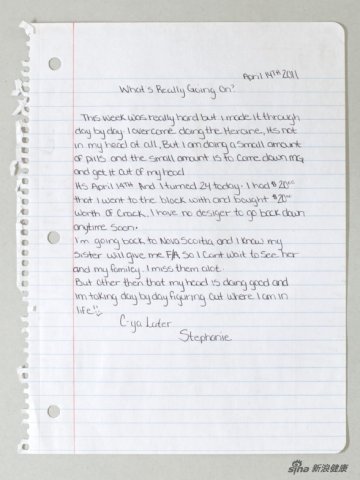 April 14TH 2011
What's Really Going On?
This week was really hard but i made it through
day by day. I overcame doing the Heroine, Its not
in my head at all. But I am doing a Small amount
of pills and the small amount is to come down
and get it out of my head
Its April 14TH And I turned 24 today. I had $20
that I went to the block with and bought $20
worth of Crack. I have no desiger to go back down
anytime soon.
I'm going back to Nova Scoitia and I know my
Sister will give me so I Cant wait to See her
and my familey. I miss them alot.
But other then that my head is doing good and
Im taking day by day figuring out where I am in
life!!
C-ya Later
Stephanie
sina 新浪健康